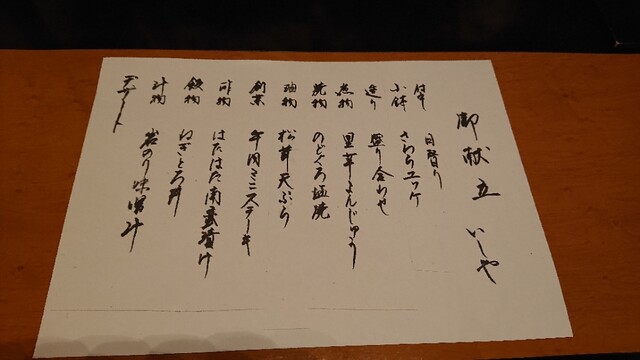 御献立 いしや
はし 日替り
小鉢 さわらユッケ
造り 盛り合わせ
煮物 里芋まんじゅう
焼物 のどぐろ塩焼
油物 松茸天ぷら
創菜 牛肉ミニステーキ
酢物 はたはた南蛮漬け
飯物 ねぎとろ丼
汁物 岩のり味噌汁
デザート